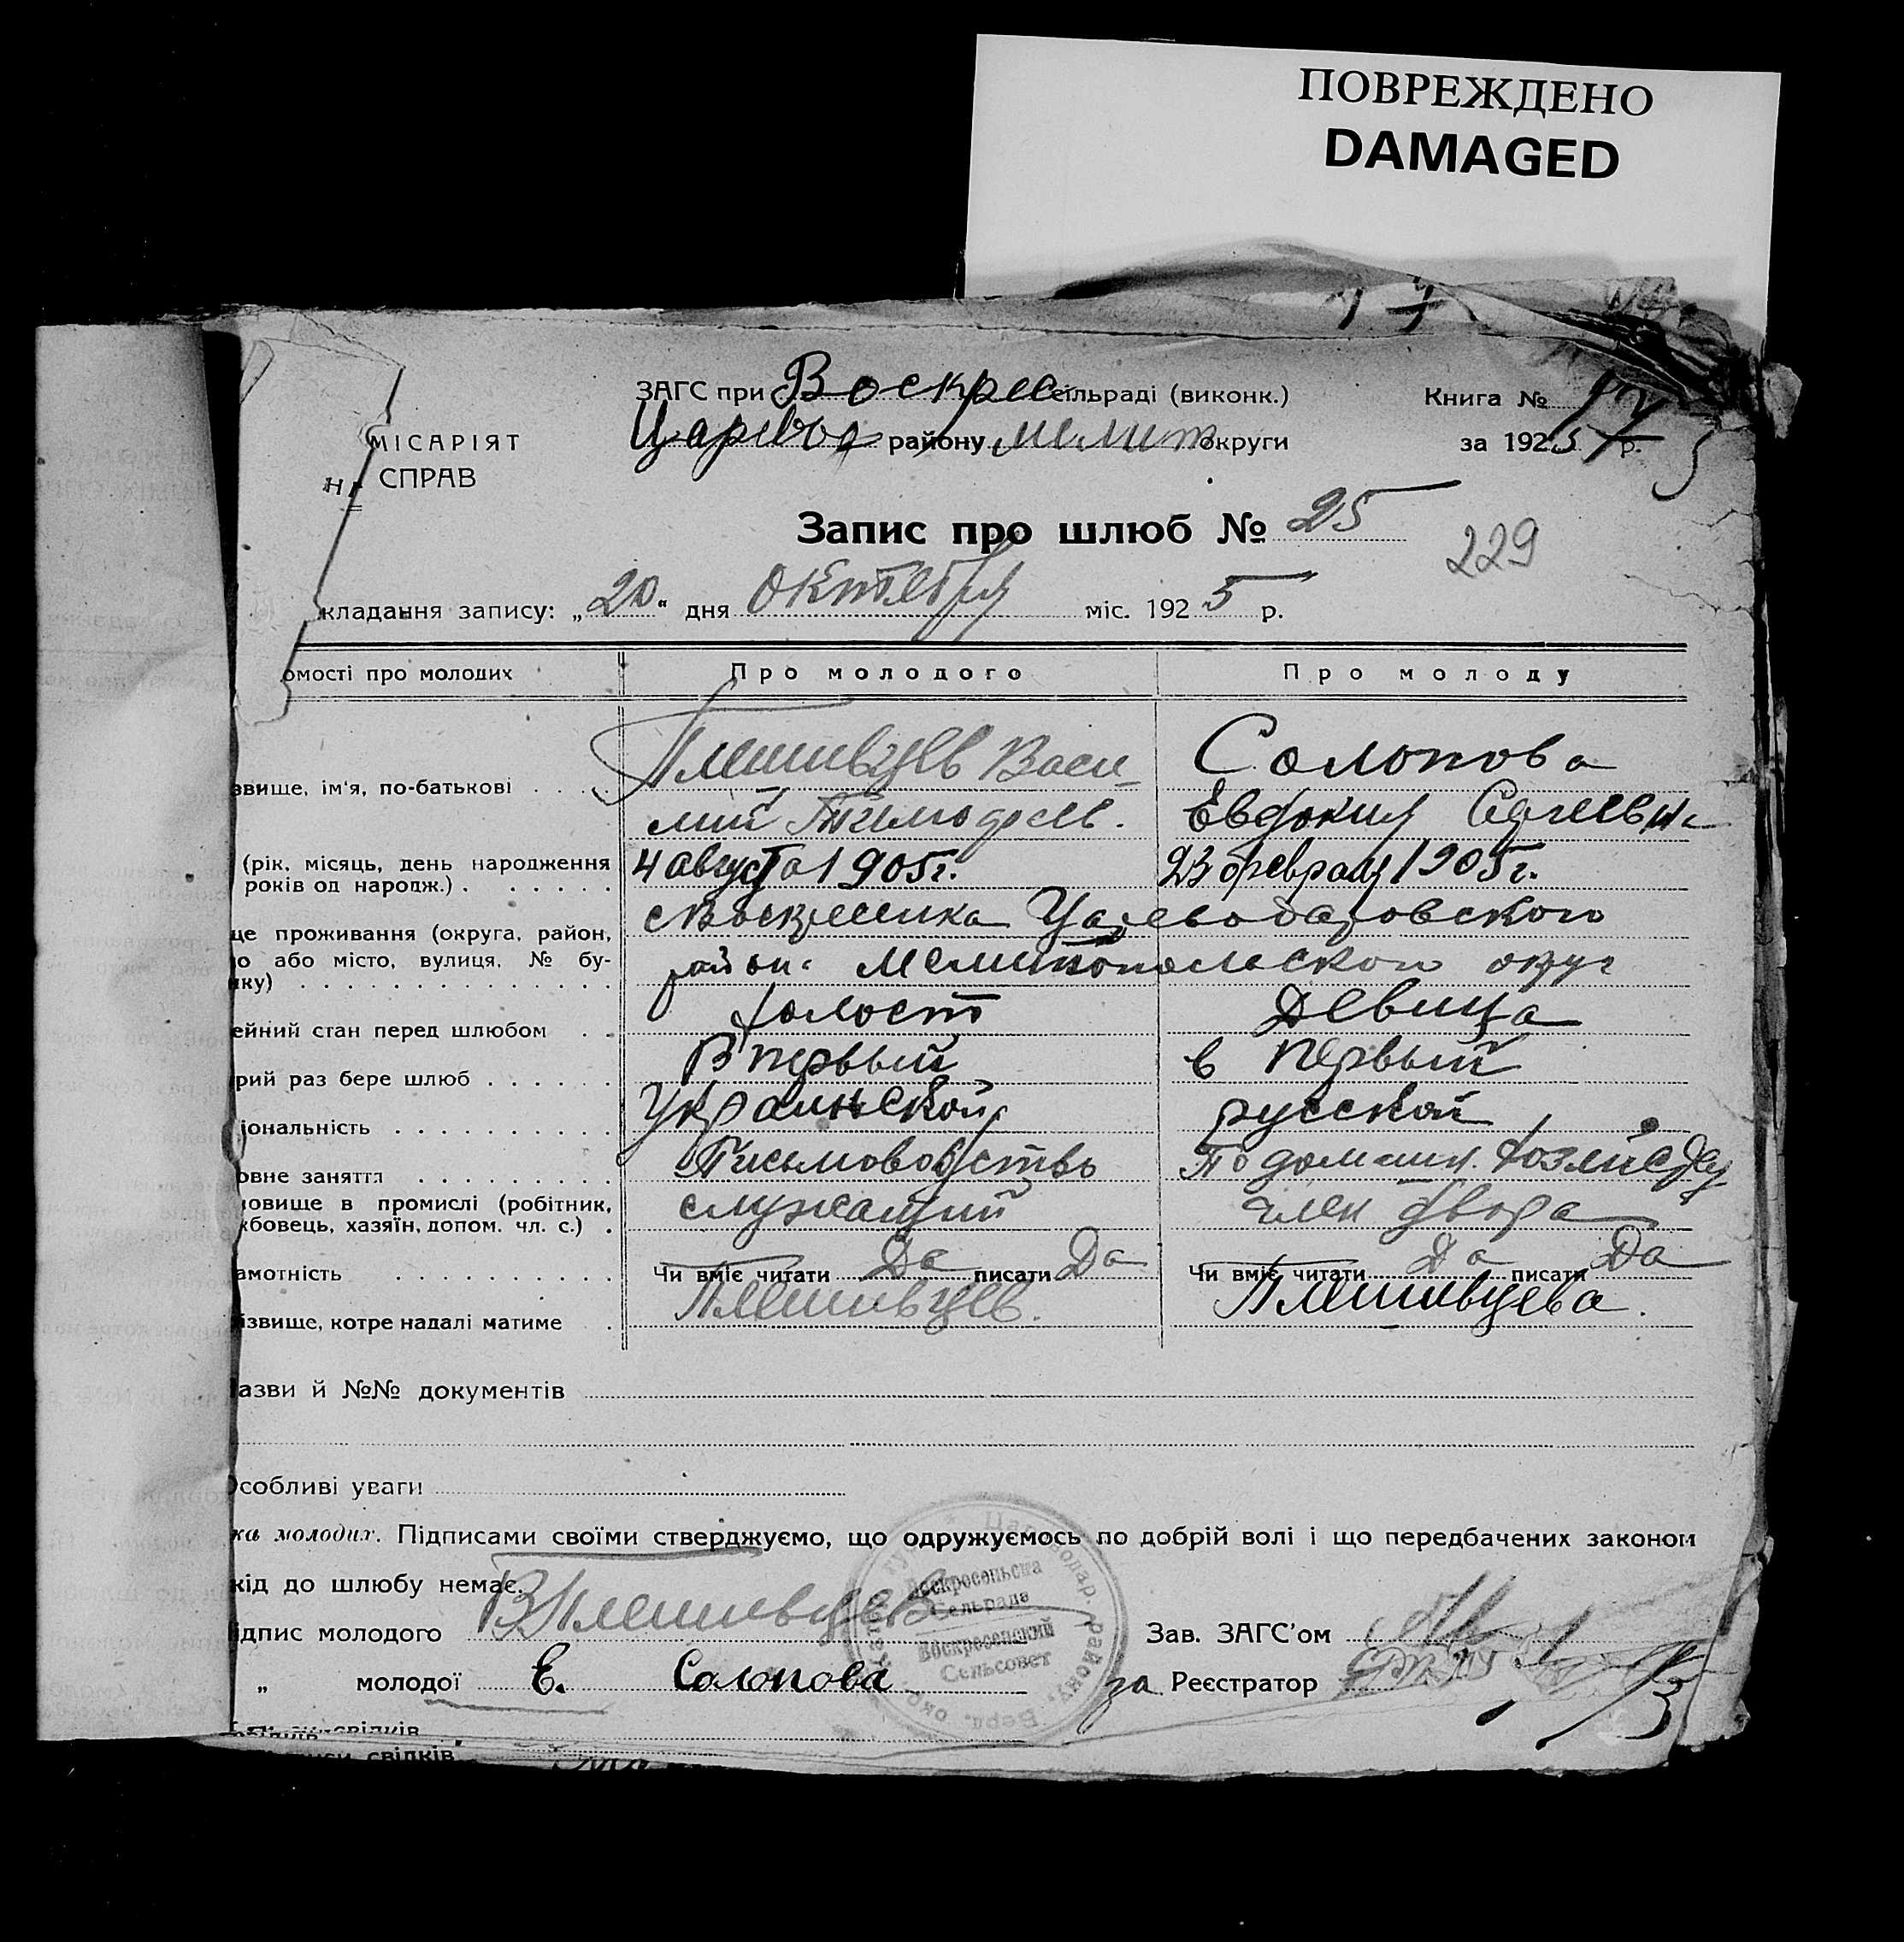 ПОВРЕЖДЕНО
DAMAGED
ЗАГС при Воскрес сільраді (виконк.) Книга №
Царевод району мелит округи за 1925 р.
МІСАРІЯТ
СПРАВ
Запис про шлюб № 25
229
кладання запису: „20“ дня октября міс. 1925 р.
омості про молодих Про молодого Про молоду
Плешивцев Васи- Солопова
звище, ім'я, по-батькові
лий Тимофеев. Евдокия Сергеевна
(рік, місяць, день народження 4 августа 1905г. 23 февраля 1905г.
років од народж.)
с Воскресенка Цареводаровского
це проживання (округа, район,
о або місто, вулиця, № бу- района Мелитопольского округ
нку)
ейний стан перед шлюбом холост Девица
рий раз бере шлюб Впервый в первый
іональність Украинской русской
овне заняття Письмоводство По домашн. хозяйству
овище в промислі (робітник, служащий член двора
жбовець, хазяїн, допом. чл. с.)
амотність Чи вміє читати Да писати Да Чи вміє читати Да писати Да
ізвище, котре надалі матиме Плешивцев. Плешивцева.
азви й №№ документів
Особливі уваги
ка молодих. Підписами своїми стверджуємо, що одружуємось по добрій волі і що передбачених законом
кід до шлюбу немає.
ідпис молодого ВПлешивцев Зав. ЗАГС'ом
„ молодої Е. Солопова за Реєстратор
Воскресенська
Сельрада
Воскресенский
Сельсовет
свідків
иси свідків